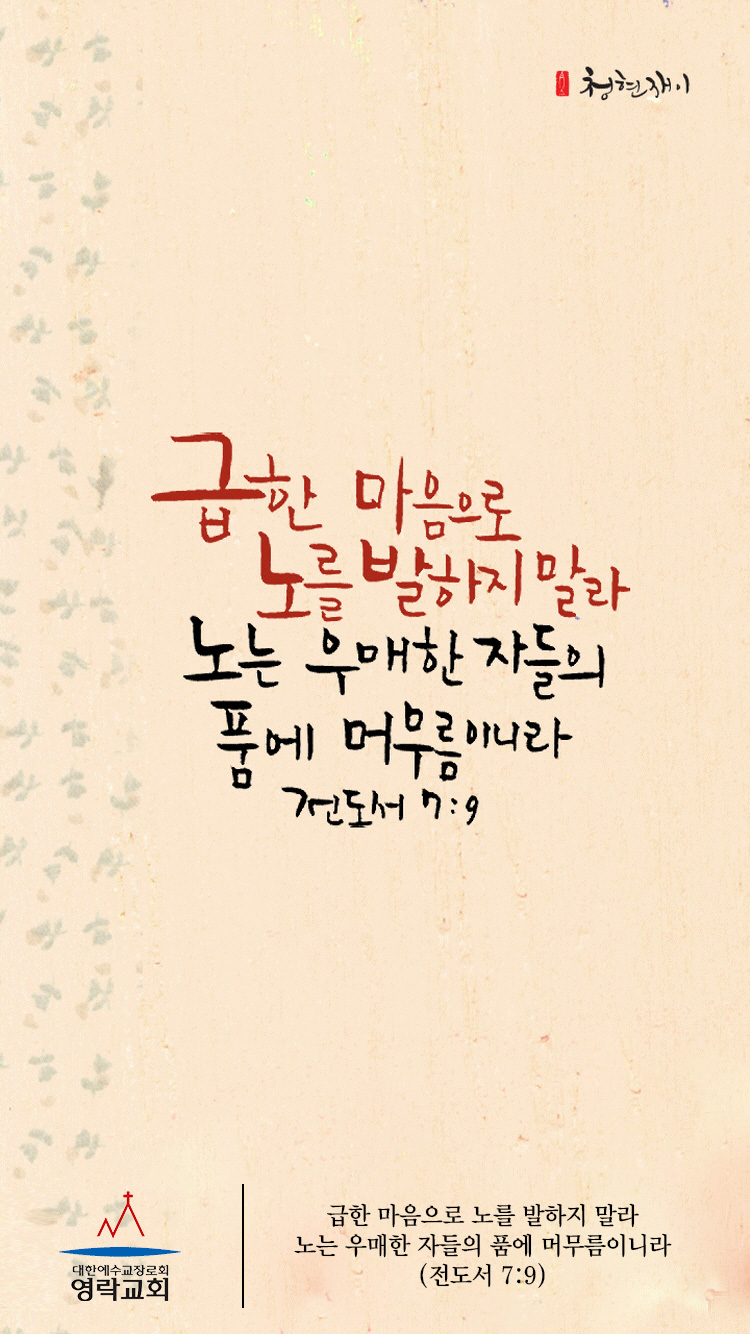 청현재이
급한 마음으로
노를 발하지 말라
노는 우매한 자들의
품에 머무름이니라
전도서 7:9
대한예수교장로회
영락교회
급한 마음으로 노를 발하지 말라
노는 우매한 자들의 품에 머무름이니라
(전도서 7:9)